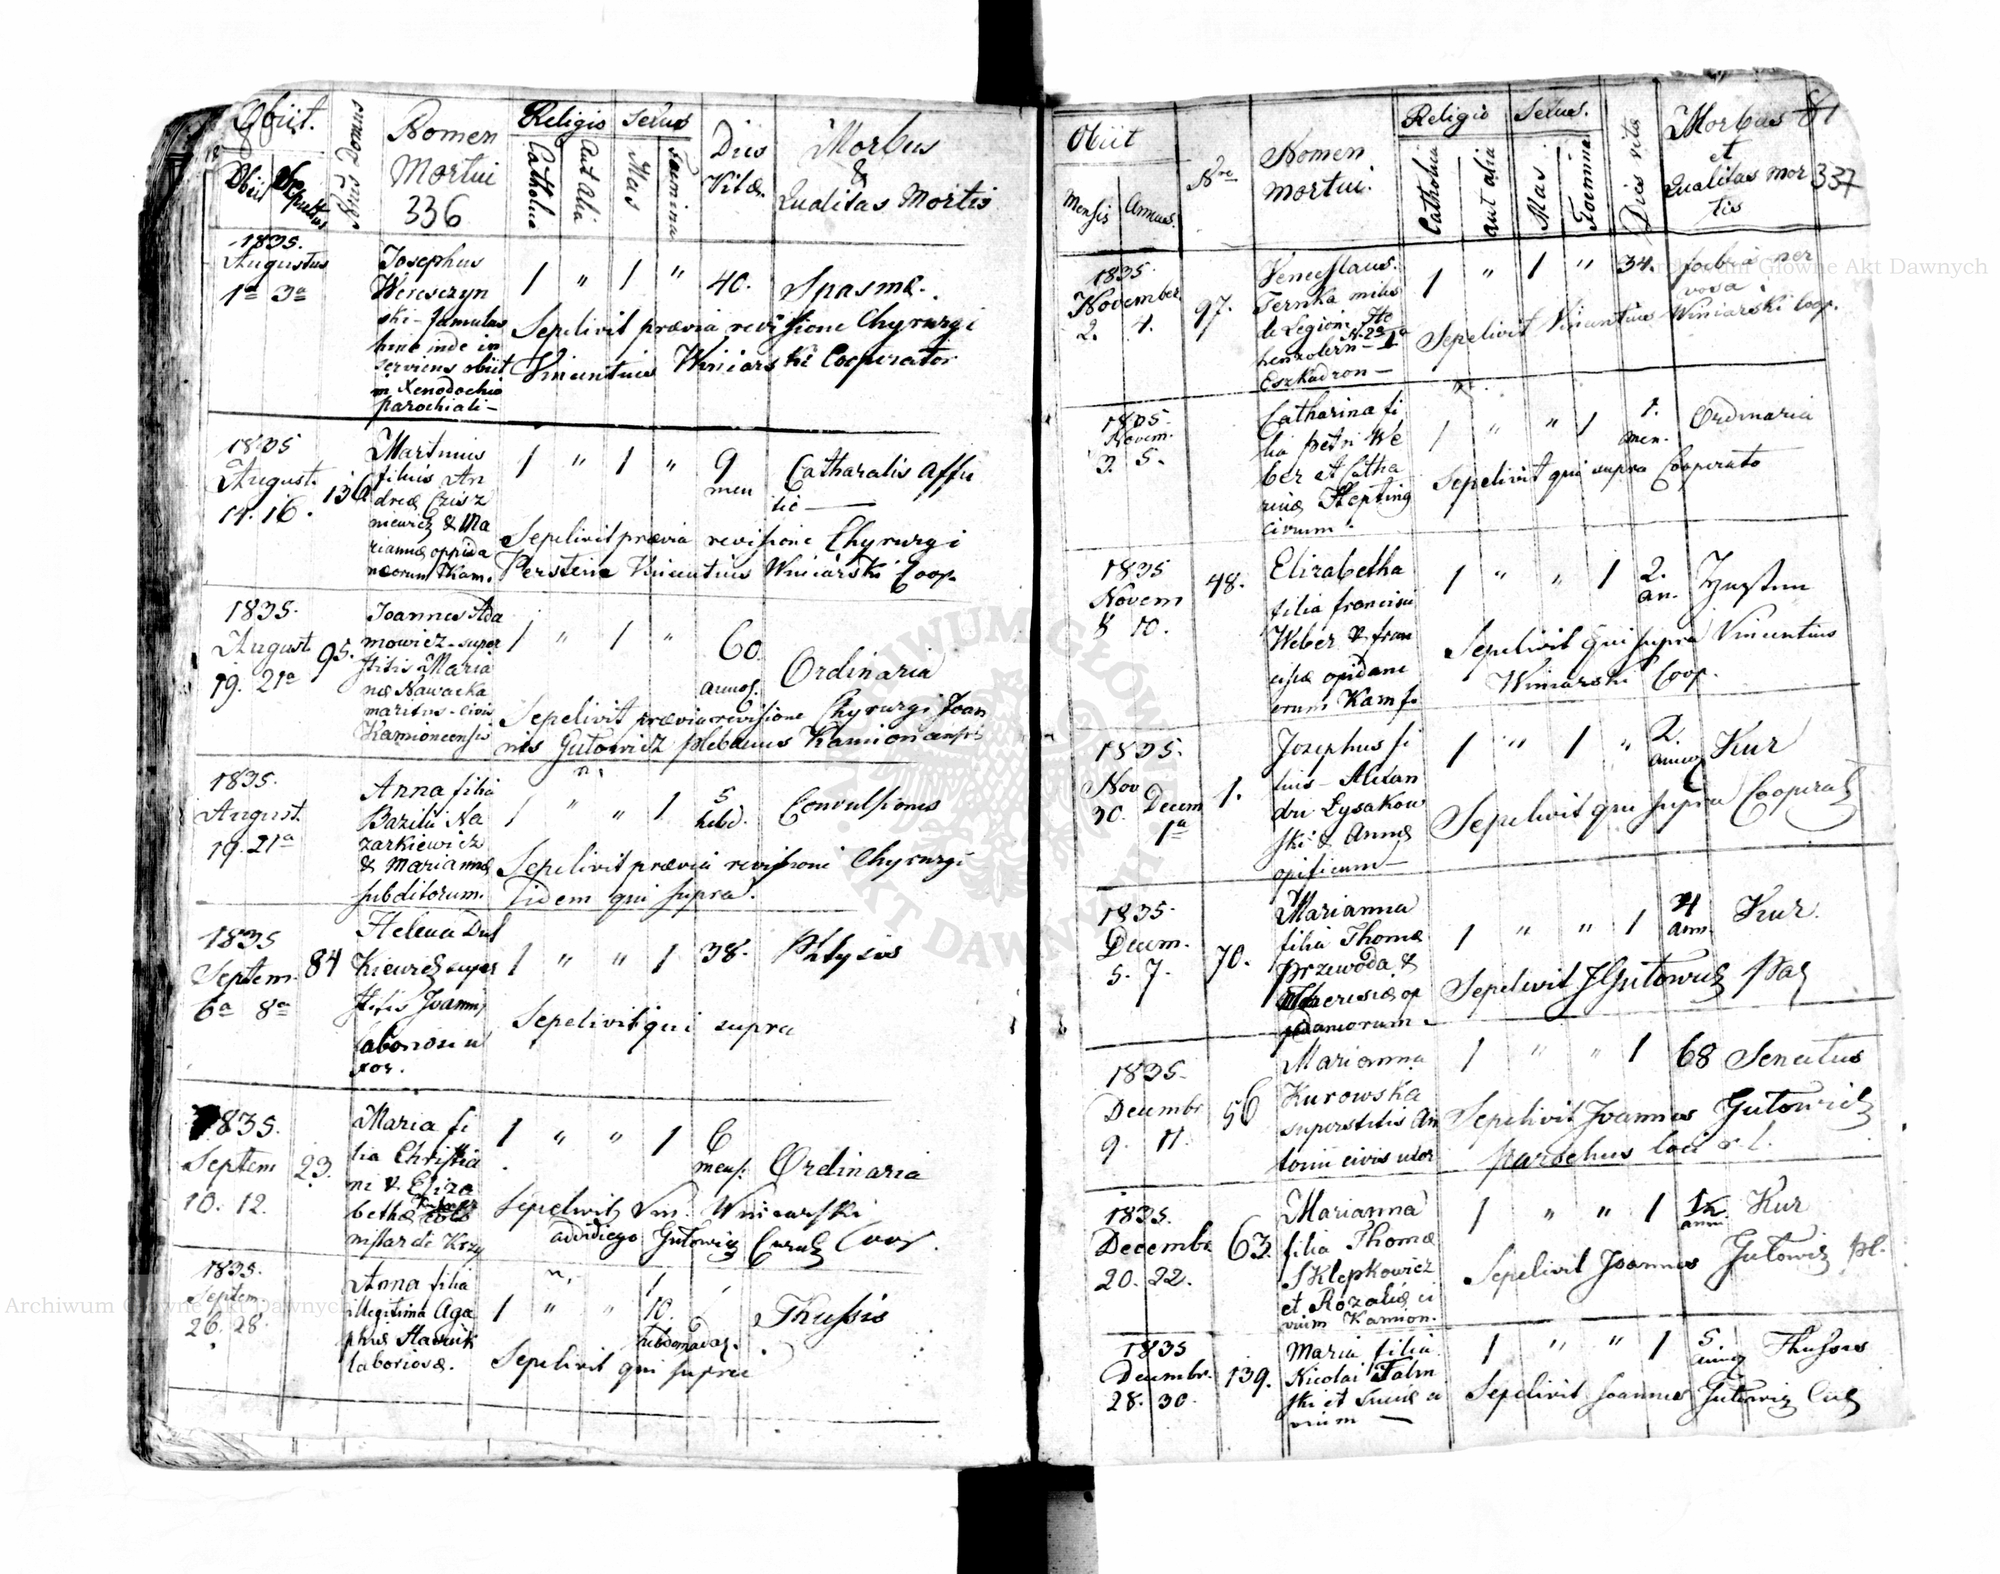 Obiit.
Nrus Domus
Nomen
Mortui
336
Religio
Sexus
Dies
Vitæ.
Morbus
&
Qualitas Mortis
Obiit
Sepultus
Catholica
Aut Alia
Mas
Fæmina
1835.
Augustus
1a 3a
Josephus
Wereszyn
ski - famulus
hinc inde in
serviens obiit
in Xenodochio
parochiali -
1 " 1 " 40. Spasmæ.
Sepelivit prævia revisione Chyrurgi
Vincentius Winiarski Cooperator
1835
August.
14. 16.
Martinus
filius An
dreæ Czisz
niewicz & Ma
riannæ oppida
neorum Kam.
1 " 1 " 9
men
Catharalis affe
tio -
Sepelivit prævia revisione Chyrurgi
Vincentius Winiarski Coop.
1835.
August
19. 21a
95.
Joannes Ada
mowicz - super
stitis Maria
næ Nawacka
maritus - civis
Kamioncensis
1 " 1 " 60
annos.
Ordinaria
Sepelivit prævia revisione Chyrurgi Joan
nes Gutowicz plebanus Kamionansis
1835.
August.
19. 21a
Anna filia
Bazilii Na
zarkiewicz
& Mariannæ
subditorum.
1 " " 1 5
hebd.
Convulsiones
Sepelivit prævia revisioni Chyrurgi
Iidem qui supra.
1835
Septem.
6a 8a
84
Helena Dul
kiewicz super
stitis Joannis
laboriosi u
xor.
1 " " 1 38. Phtysis
Sepelivit qui supra
1835.
Septem
10. 12.
23.
Maria fi
lia Christia
ni & Eliza
bethæ
1 " " 1 6
mens.
Ordinaria
Sepelivit Vin. Winiarski
Gutowicz Coop.
1835.
Septem.
26. 28.
Anna filia
illegitima Aga
laboriosæ.
1 " "
1
10.
hebdomadas.
Thussis
Sepelivit qui supra
Obiit
Nro
Nomen
mortui.
Religio
Sexus.
Dies vitæ
Morbus
et
Qualitas mor
tis
81
337
Mensis
Annus
Catholica
aut alia
Mas
Foemina
1835.
November
2. 4.
97.
Venceslaus.
Ternka miles
de Legion. Ho
henzolern -
Eszkadron -
1 " 1 " 34. febris ner
vosa
Sepelivit Vincentius Winiarski Coop.
1835.
Novem.
3. 5.
Catharina fi
lia Petri We
ber et Catha
rinæ Hepting
civium.
1 " " 1 1.
men.
Ordinaria
Sepelivit qui supra Cooperato
1835
Novem
8 10.
48.
Elizabetha
filia francisci
Weber & fran
ciscæ opidane
orum Kams.
1 " " 1 2.
an.
Sepelivit qui supra Vincentius
Winiarski Coop.
1835.
Nov
30. Decem
1a
1.
Josephus fi
lius - Alexan
dri Łysakow
ski & Annæ
opificum -
1 " 1 " 2
Kur
Sepelivit qui supra Cooperat
1835.
Decem.
5. 7.
70.
Marianna
filia Thomæ
Przewoda &
Theresiæ op
pidanorum -
1 " " 1 4
ann.
Kur.
Sepelivit J Gutowicz
1835.
Decembr
9. 11.
56
Marianna
Kurowska
superstitis An
tonii civis uxor
1 " " 1 68 Senectus
Sepelivit Joannes Gutowicz
parochus loci
1835.
Decembr
20. 22.
63.
Marianna
filia Thomæ
Sklepkowicz
et Rozaliæ ci
vium Kamion.
1 " " 1
Kur
Sepelivit Joannes Gutowicz
1835
Decembr.
28. 30.
139.
Maria filia
Nicolai Falin
ski et ci
vium -
1 " " 1 5
Thussis
Sepelivit Joannes Gutowicz
Archiwum Główne Akt Dawnych
Archiwum Główne Akt Dawnych
ARCHIWUM GŁÓWNE AKT DAWNYCH